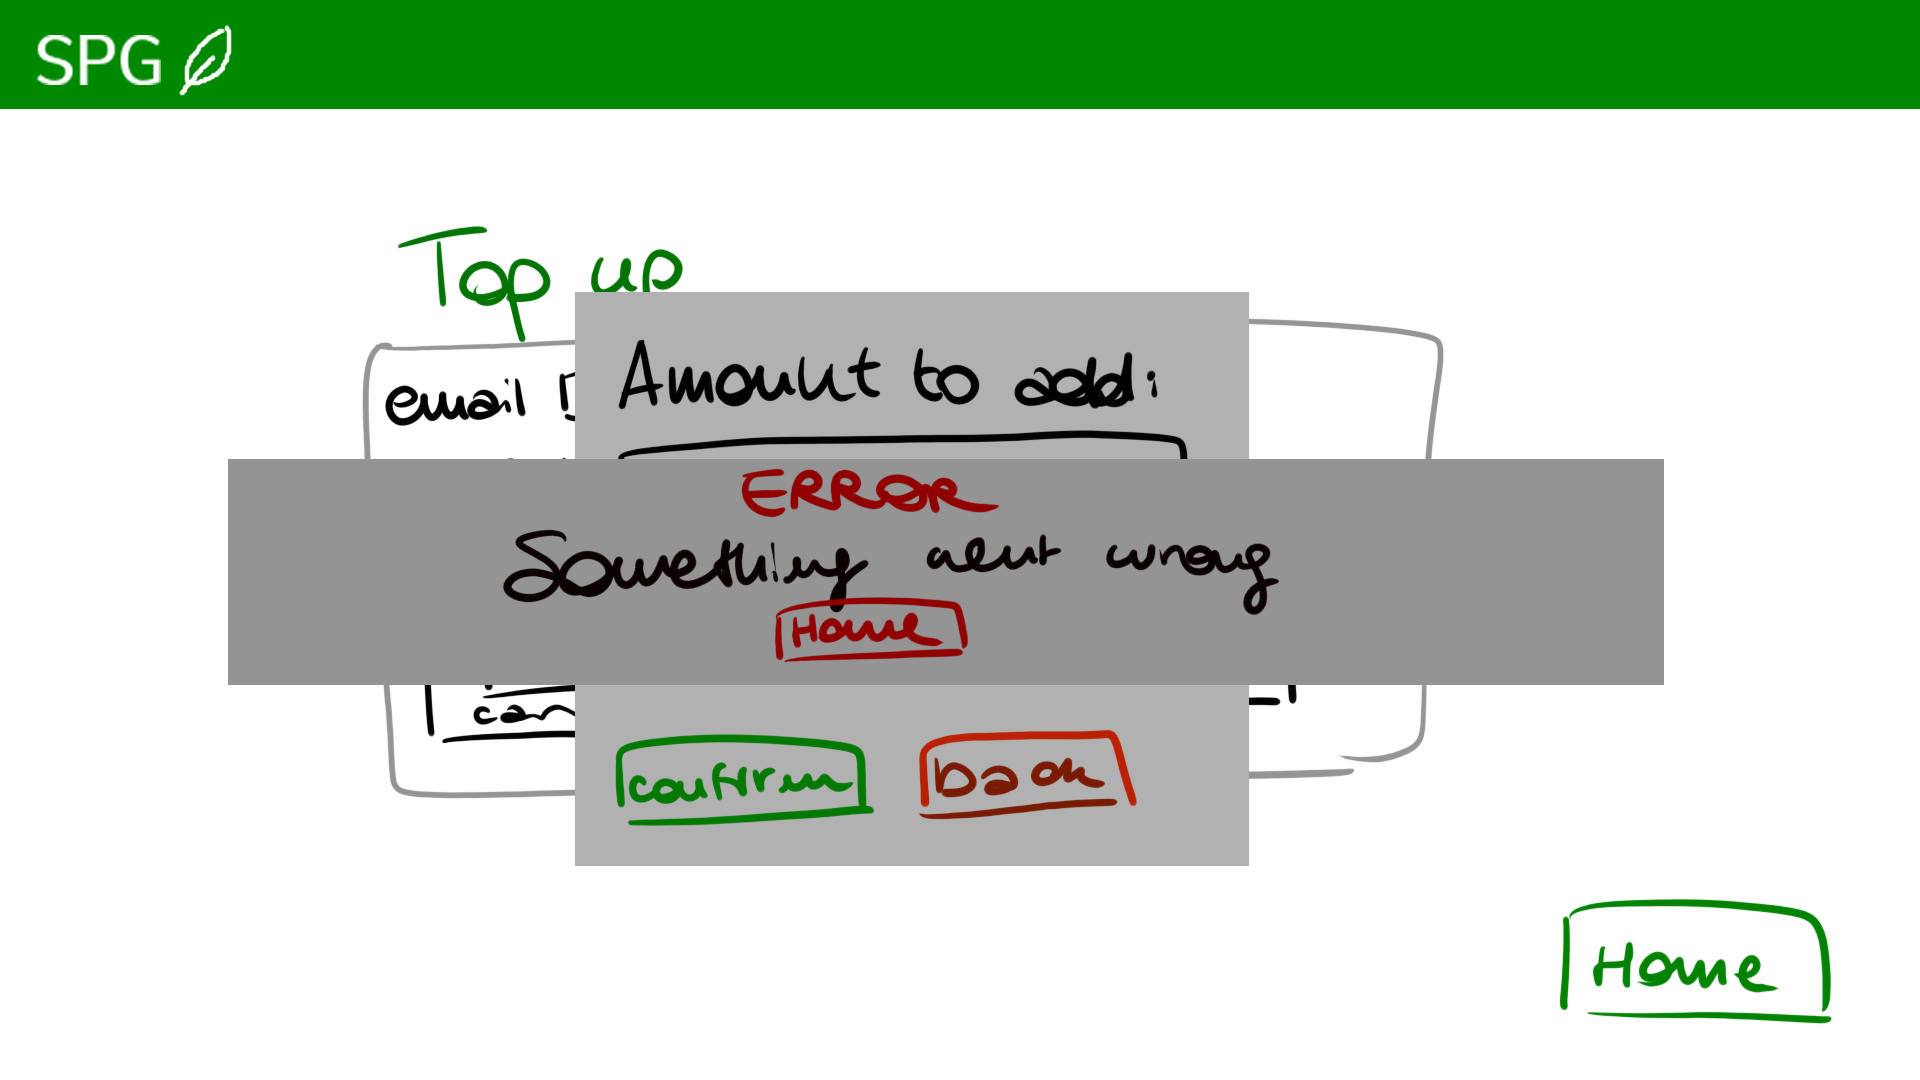 SPG
Top up
email
Amount to add:
ERROR
Something went wrong
Home
can
confirm
back
Home